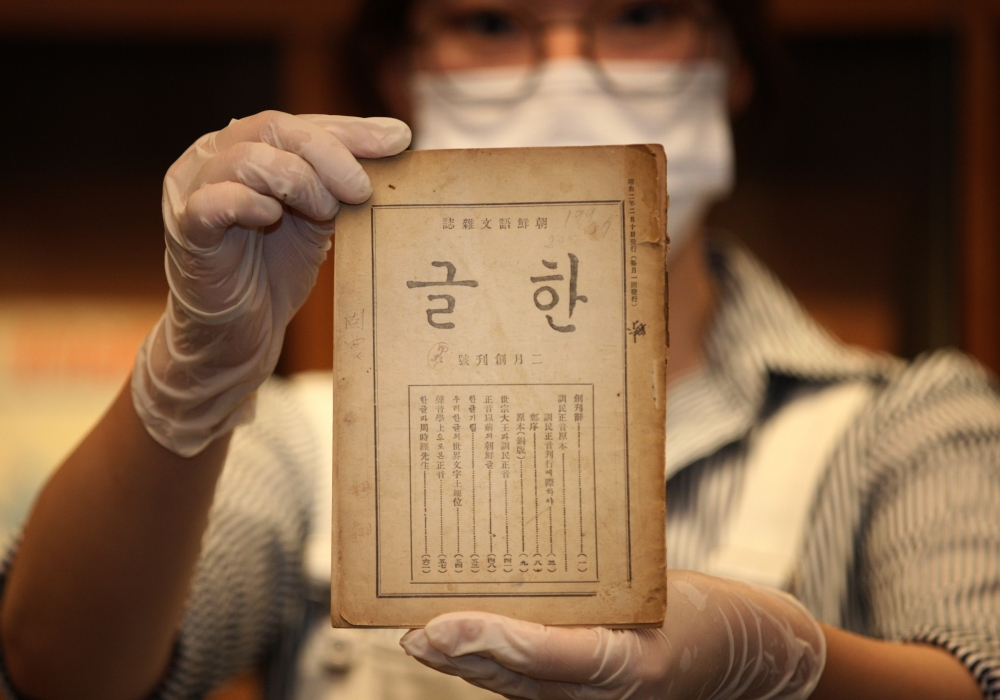 朝鮮語文雜誌
한글
二月創刊號
昭和二年二月十日發行(每月一回發行)
創刊辭 (一)
訓民正音原本
訓民正音刊行에際하야
鄭序
原本(銅版)
世宗大王과訓民正音
正音以前의朝鮮글
한글기림
우리한글의世界文字上地位
聲音學上으로본正音
한글과周時經先生